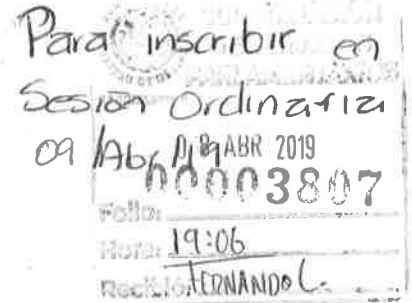 Para inscribir en
Sesión Ordinaria
09 Abr 09 ABR 2019
00003807
Folio:
Hora: 19:06
Recibió: FERNANDO C.